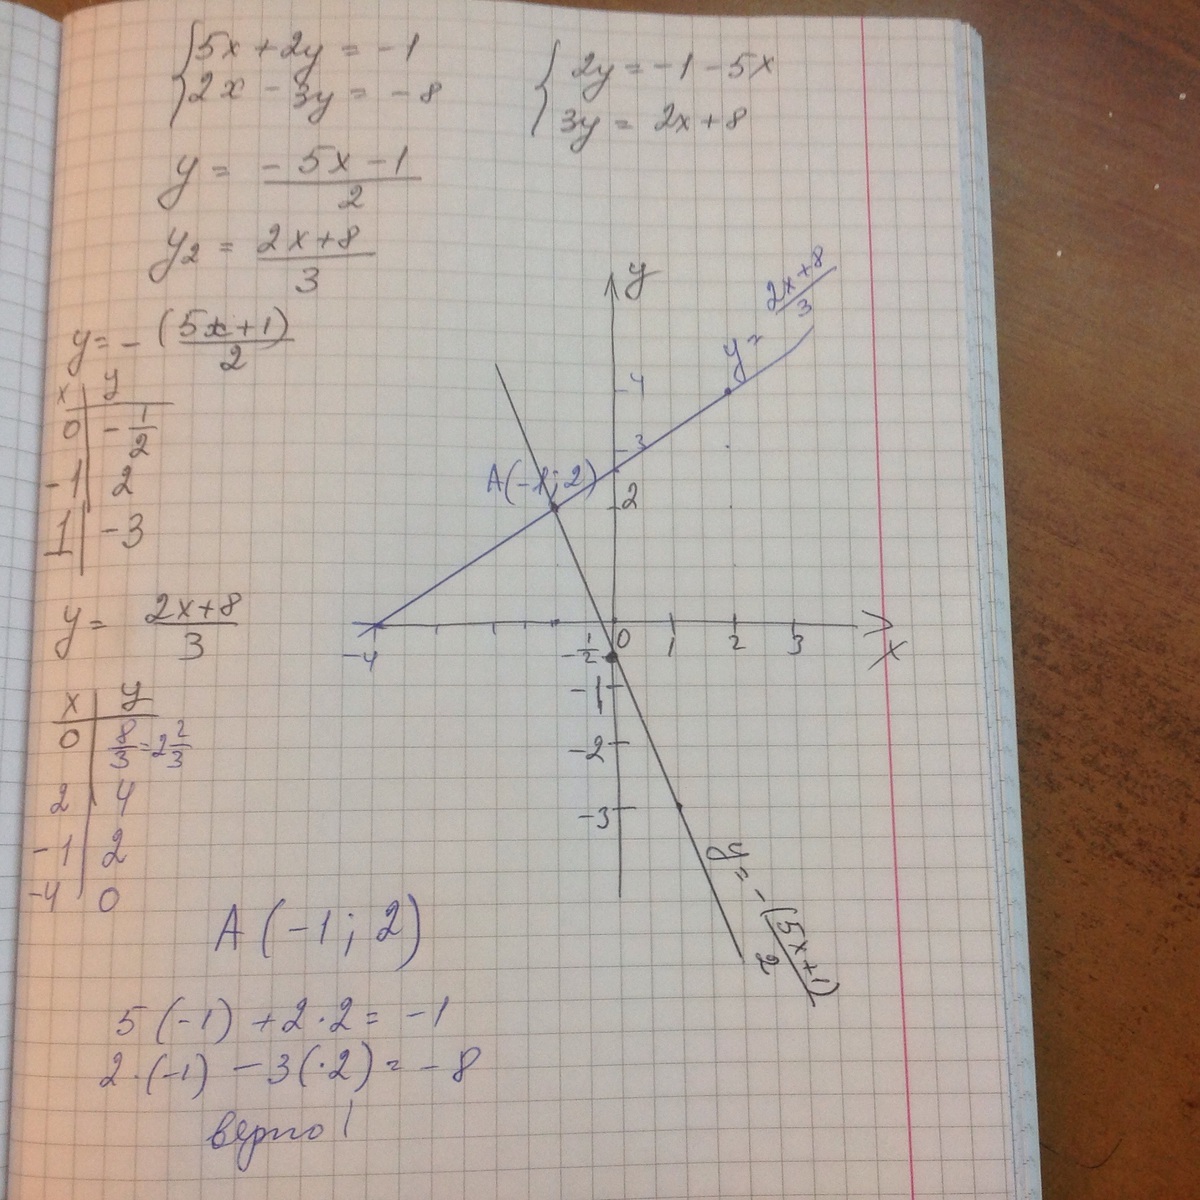 {5x+2y = -1
{2x - 3y = -8
{2y = -1 - 5x
{3y = 2x+8
y = (-5x-1)/2
y₂ = (2x+8)/3
y = - (5x+1)/2
x | y
0 | -1/2
-1 | 2
1 | -3
y = (2x+8)/3
x | y
0 | 8/3 = 2 2/3
2 | 4
-1 | 2
-4 | 0
y
y = (2x+8)/3
4
3
A(-1; 2)
2
-4 -1/2 0 1 2 3 x
-1
-2
-3
y = - (5x+1)/2
A (-1; 2)
5 (-1) +2·2 = -1
2·(-1) - 3(·2) = -8
верно!